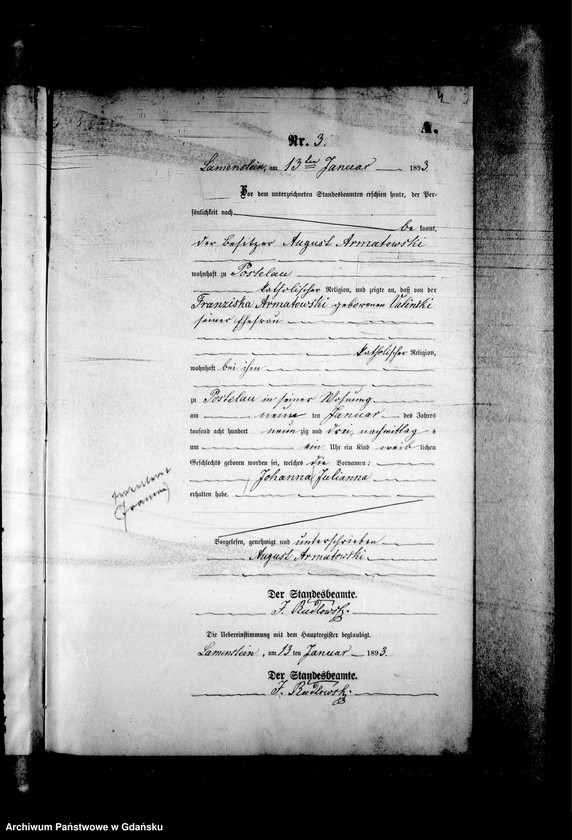 4
A.
Nr. 3.
Lamenstein, am 13ten Januar 1893.
Vor dem unterzeichneten Standesbeamten erschien heute, der Per-
sönlichkeit nach
be kannt,
der Besitzer August Armatowski
wohnhaft zu Postelau
katholischer Religion, und zeigte an, daß von der
Franziska Armatowski geborenen
seiner Ehefrau
katholischer Religion,
wohnhaft bei ihm
zu Postelau in seiner Wohnung
am neun ten Januar des Jahres
tausend acht hundert neun zig und drei, nachmittag s
um ein Uhr ein Kind weib lichen
Geschlechts geboren worden sei, welches die Vornamen:
Johanna Julianna
erhalten habe.
Vorgelesen, genehmigt und unterschrieben
August Armatowski
Der Standesbeamte.
Die Uebereinstimmung mit dem Hauptregister beglaubigt.
Lamenstein, am 13. ten Januar 1893.
Der Standesbeamte.
Archiwum Państwowe w Gdańsku